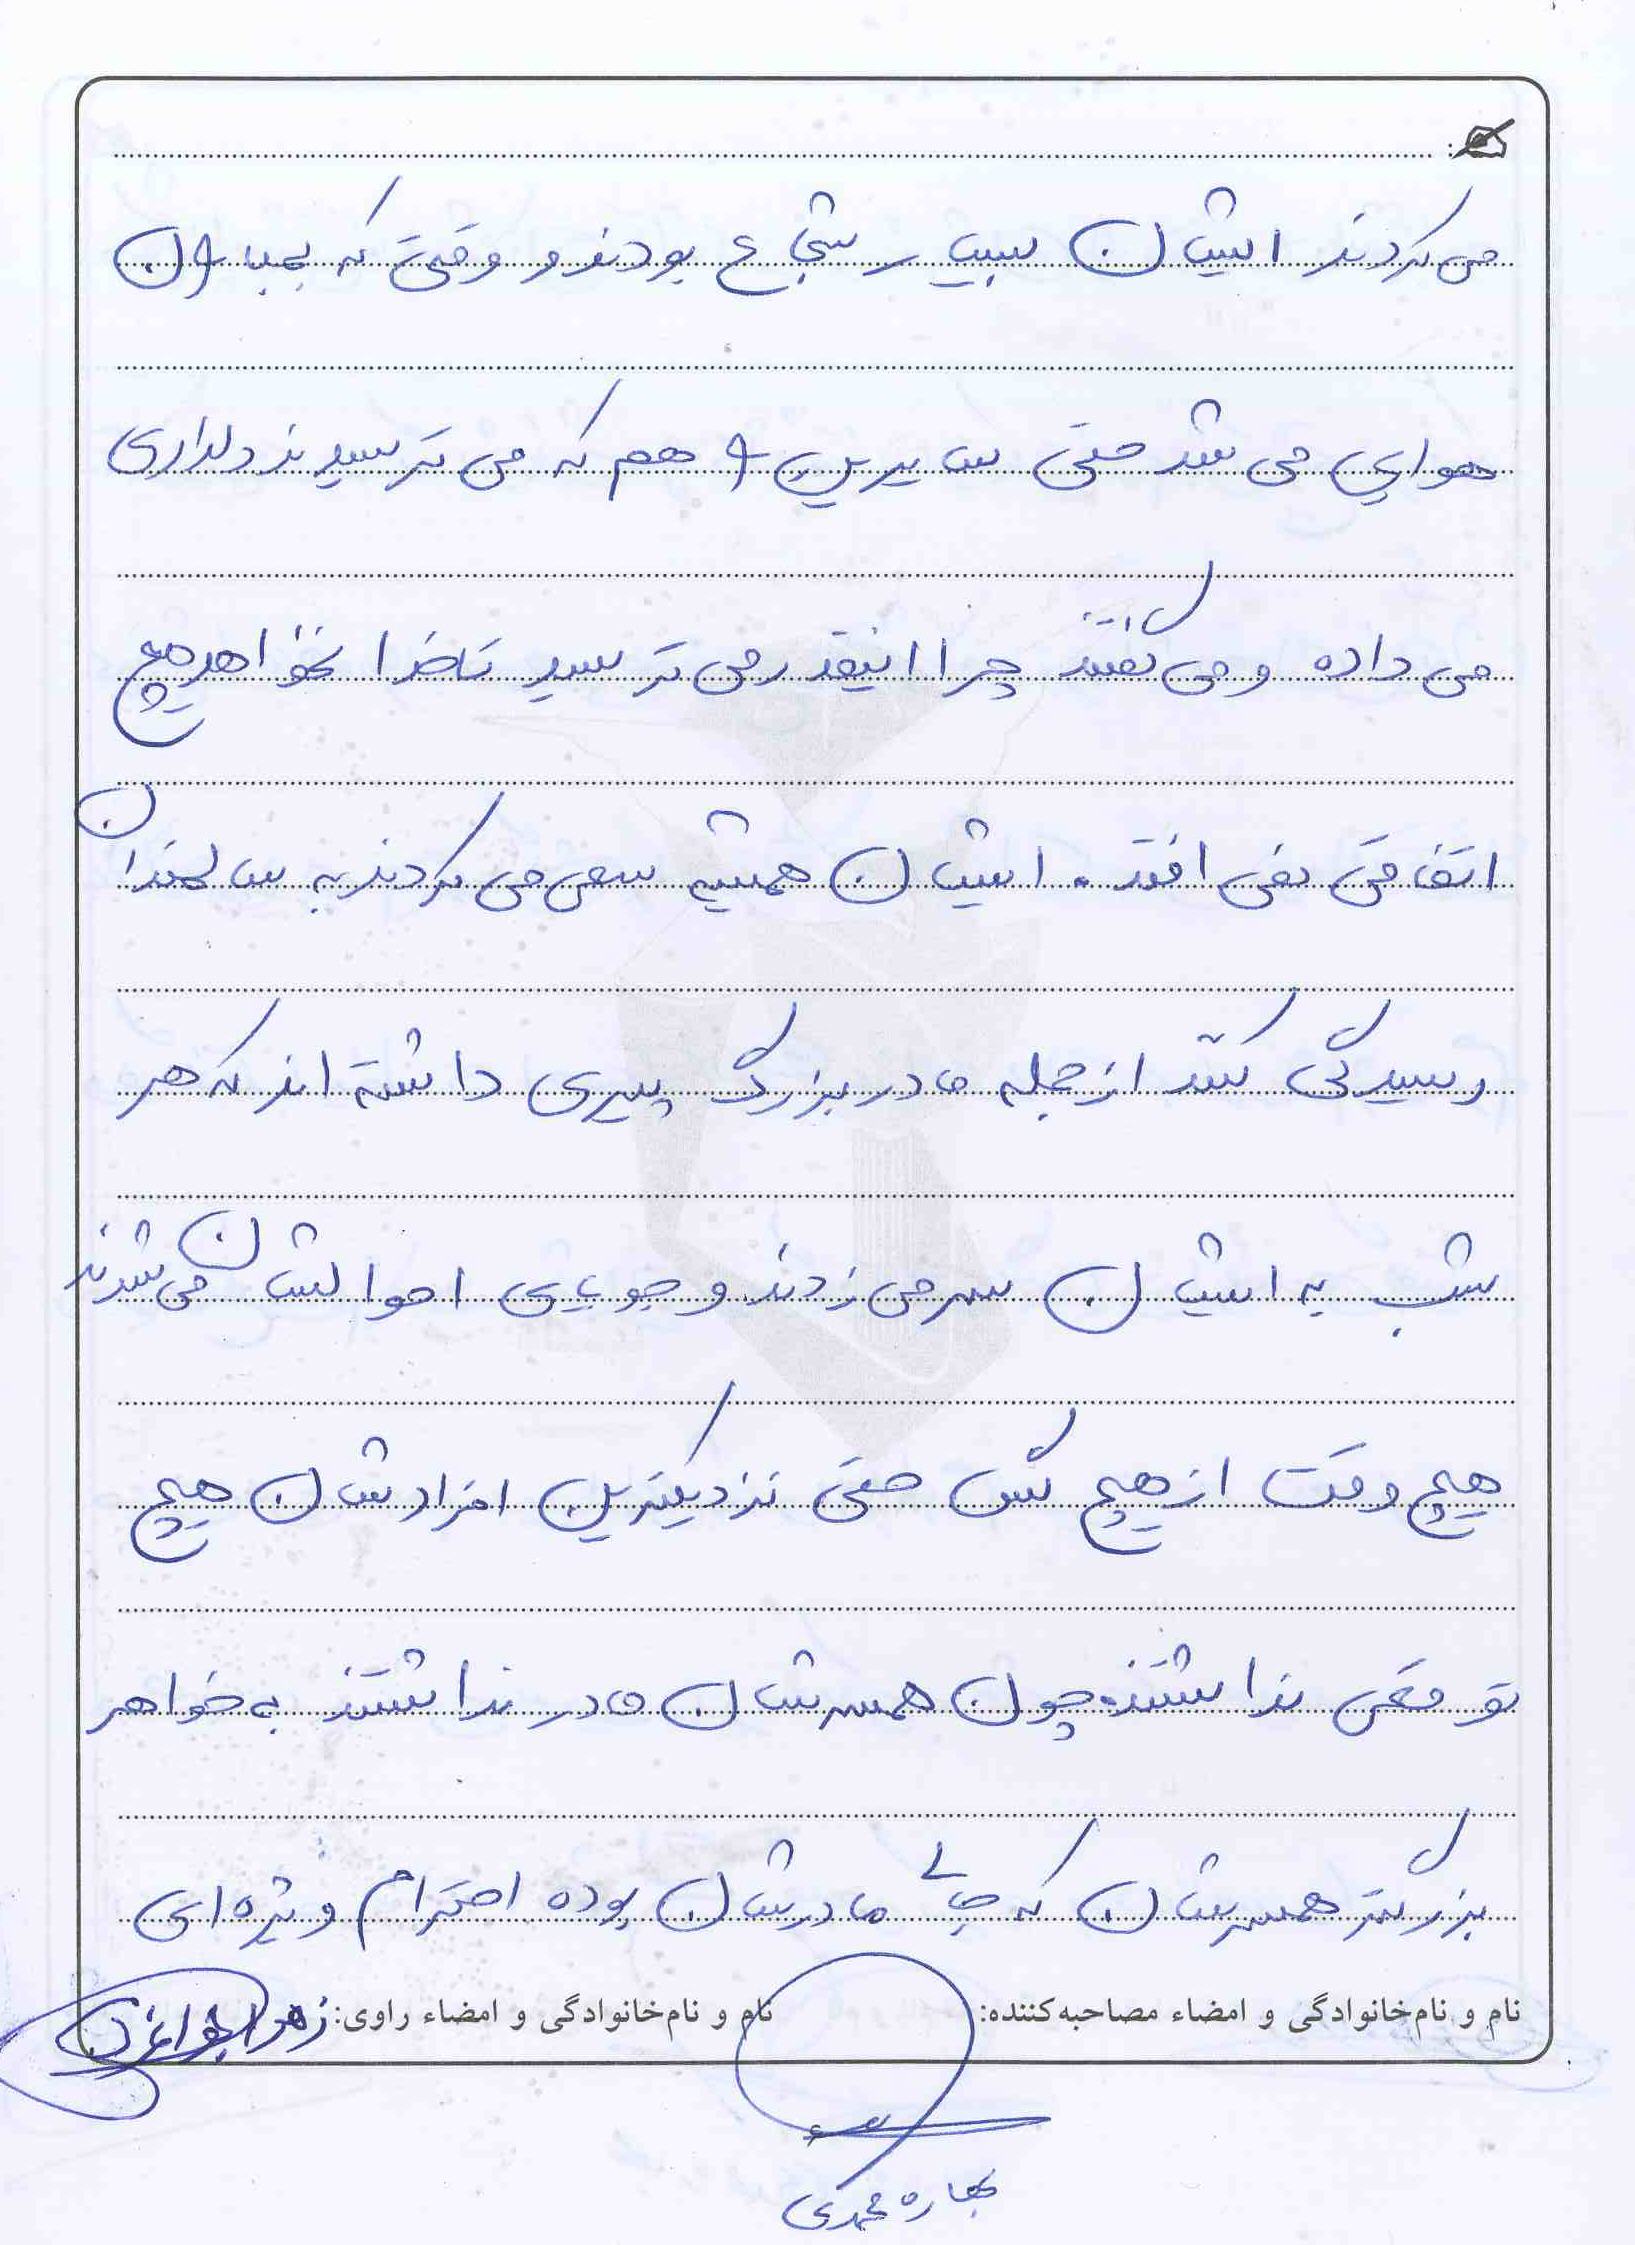 می کردند ایشان بسیار شجاع بودند و وقتی که بمباران
هوایی می شد حتی سایرین هم که می ترسیدند دلداری
می داده و می گفتند چرا اینقدر می ترسید تا خدا نخواهد هیچ
اتفاقی نمی افتد. ایشان همیشه سعی می کردند به سالمندان
رسیدگی کنند از جمله مادربزرگ پیری داشته اند که هر
شب به ایشان سر می زدند و جویای احوالشان می شدند
هیچ وقت از هیچ کس حتی نزدیکترین افرادشان هیچ
توقعی نداشتند و چون همسرشان مادر نداشتند به خواهر
بزرگتر همسرشان که جای مادرشان بوده احترام ویژه ای
نام و نام‌خانوادگی و امضاء مصاحبه‌کننده: نام و نام‌خانوادگی و امضاء راوی: زهرا
بهاره محمدی